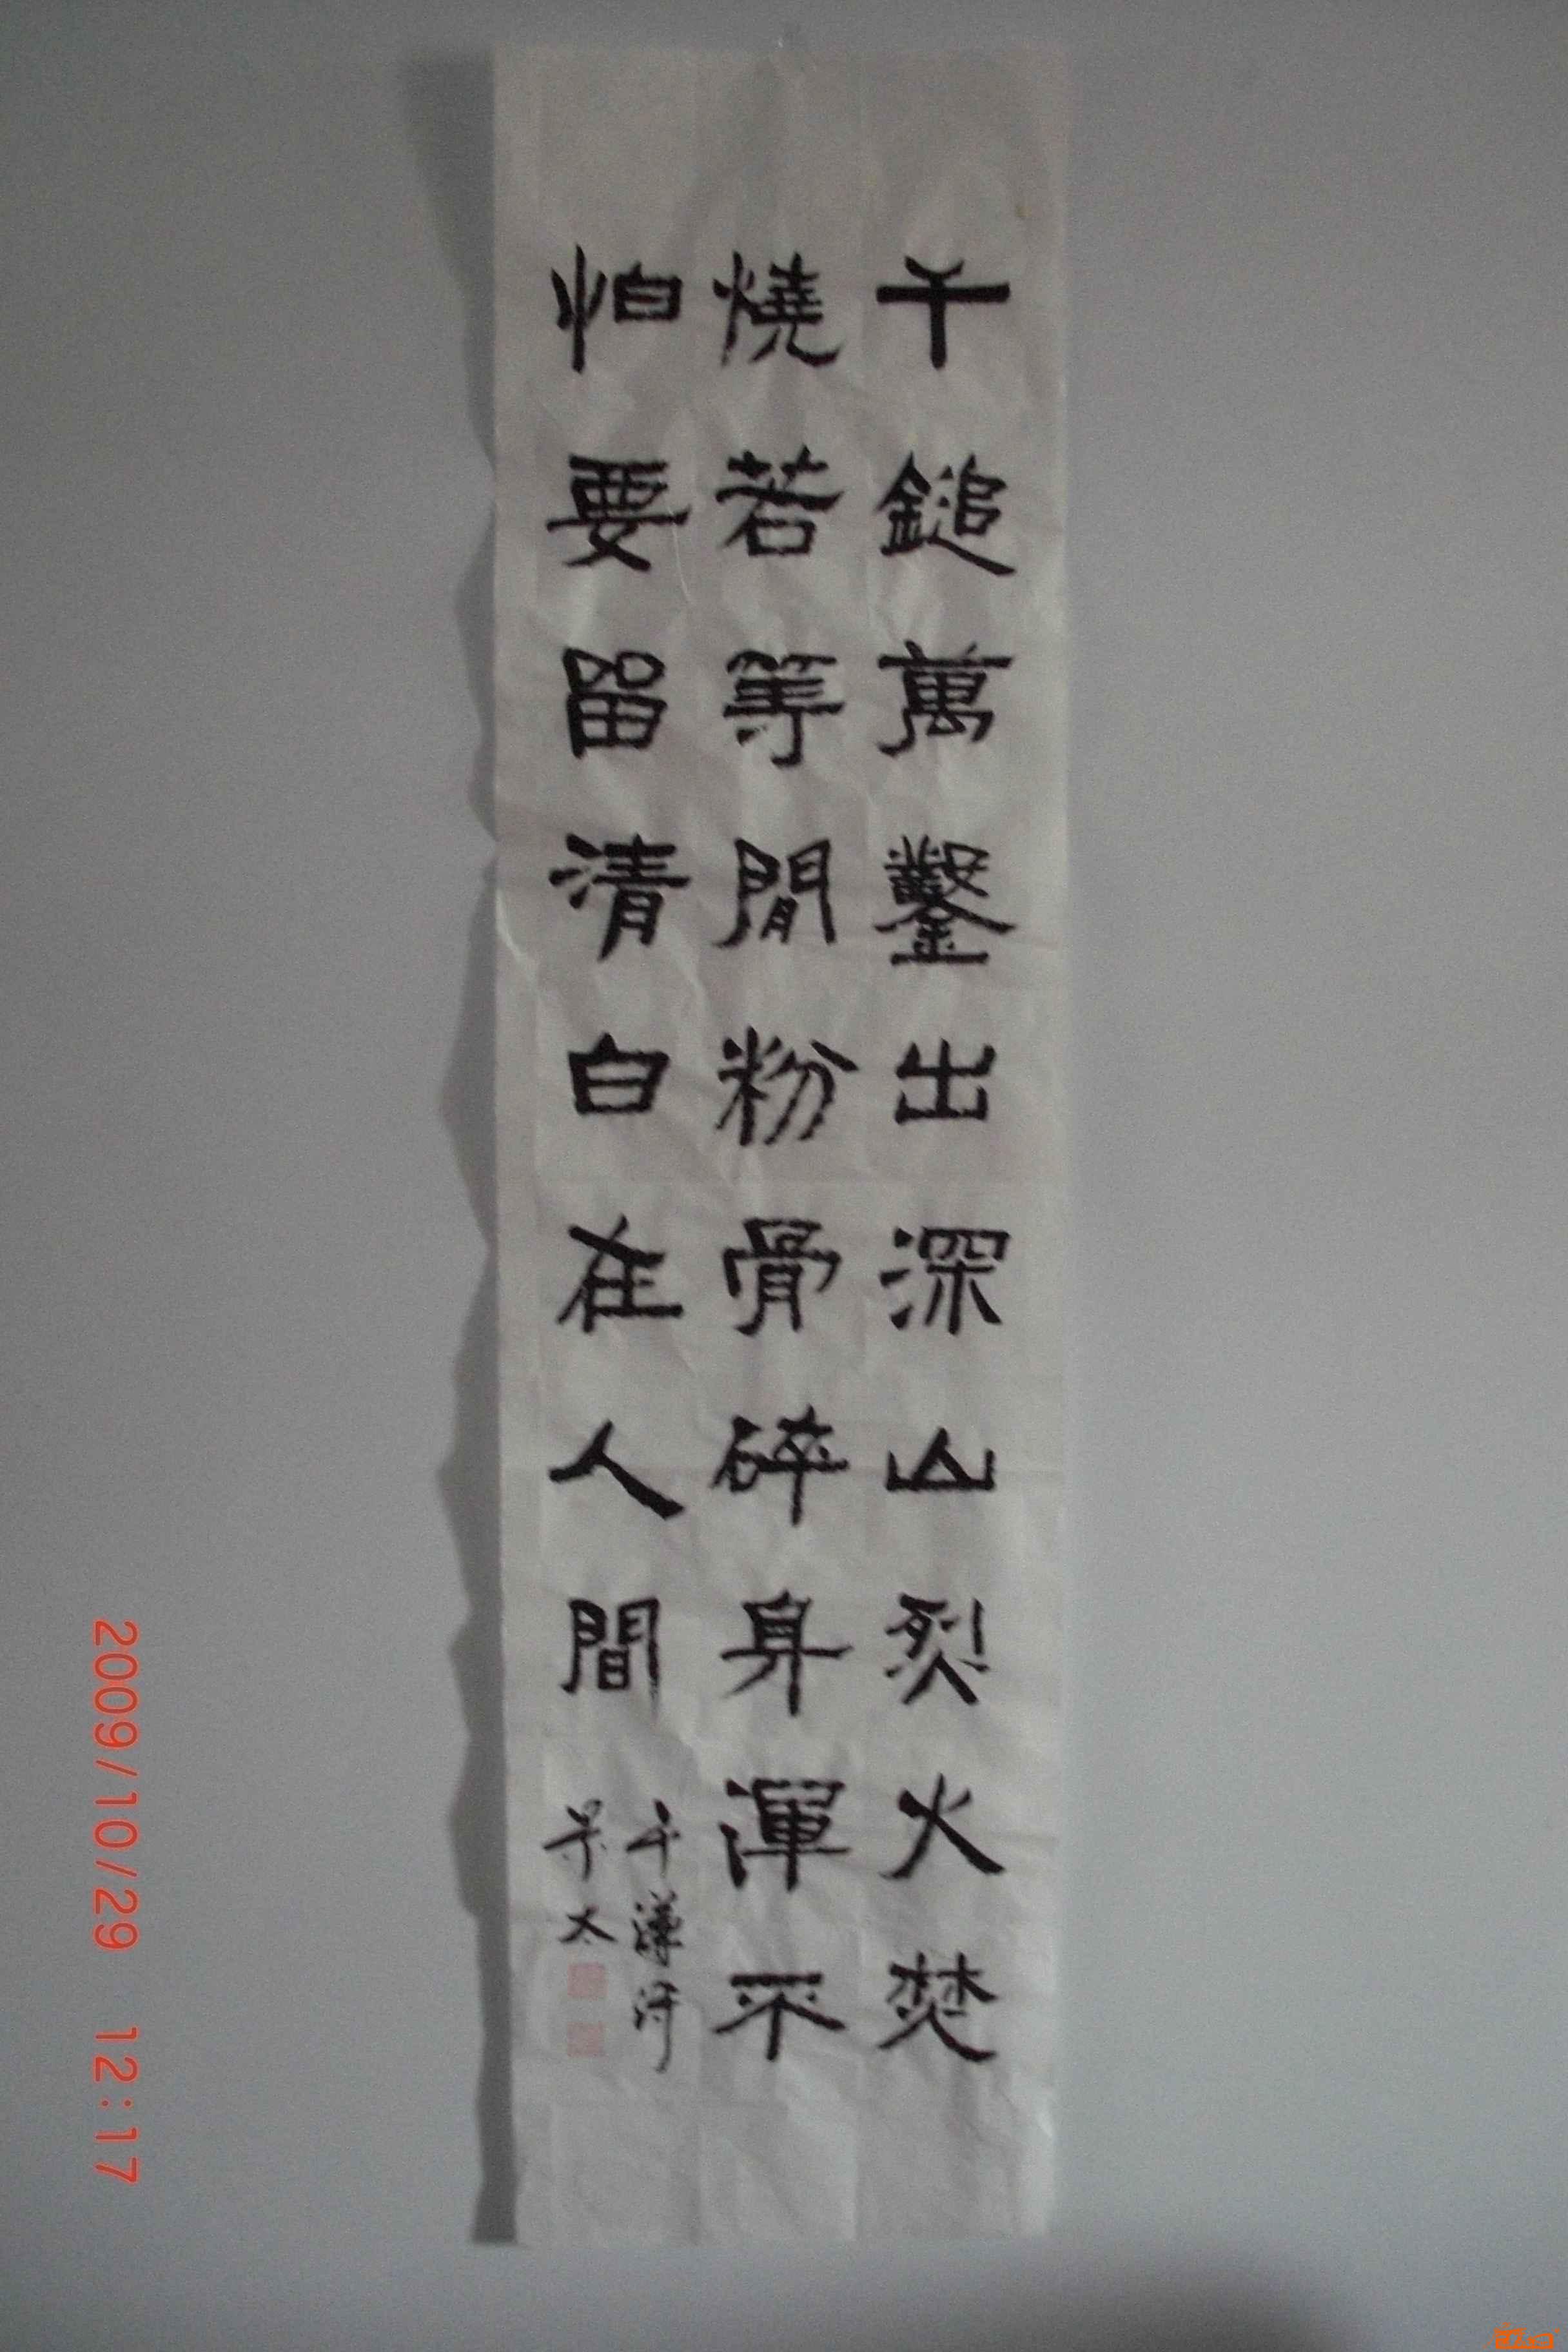 千鎚萬鑿出深山烈火焚
燒若等閒粉骨碎身渾不
怕要留清白在人間
于謙詩
2009/10/29 12:17